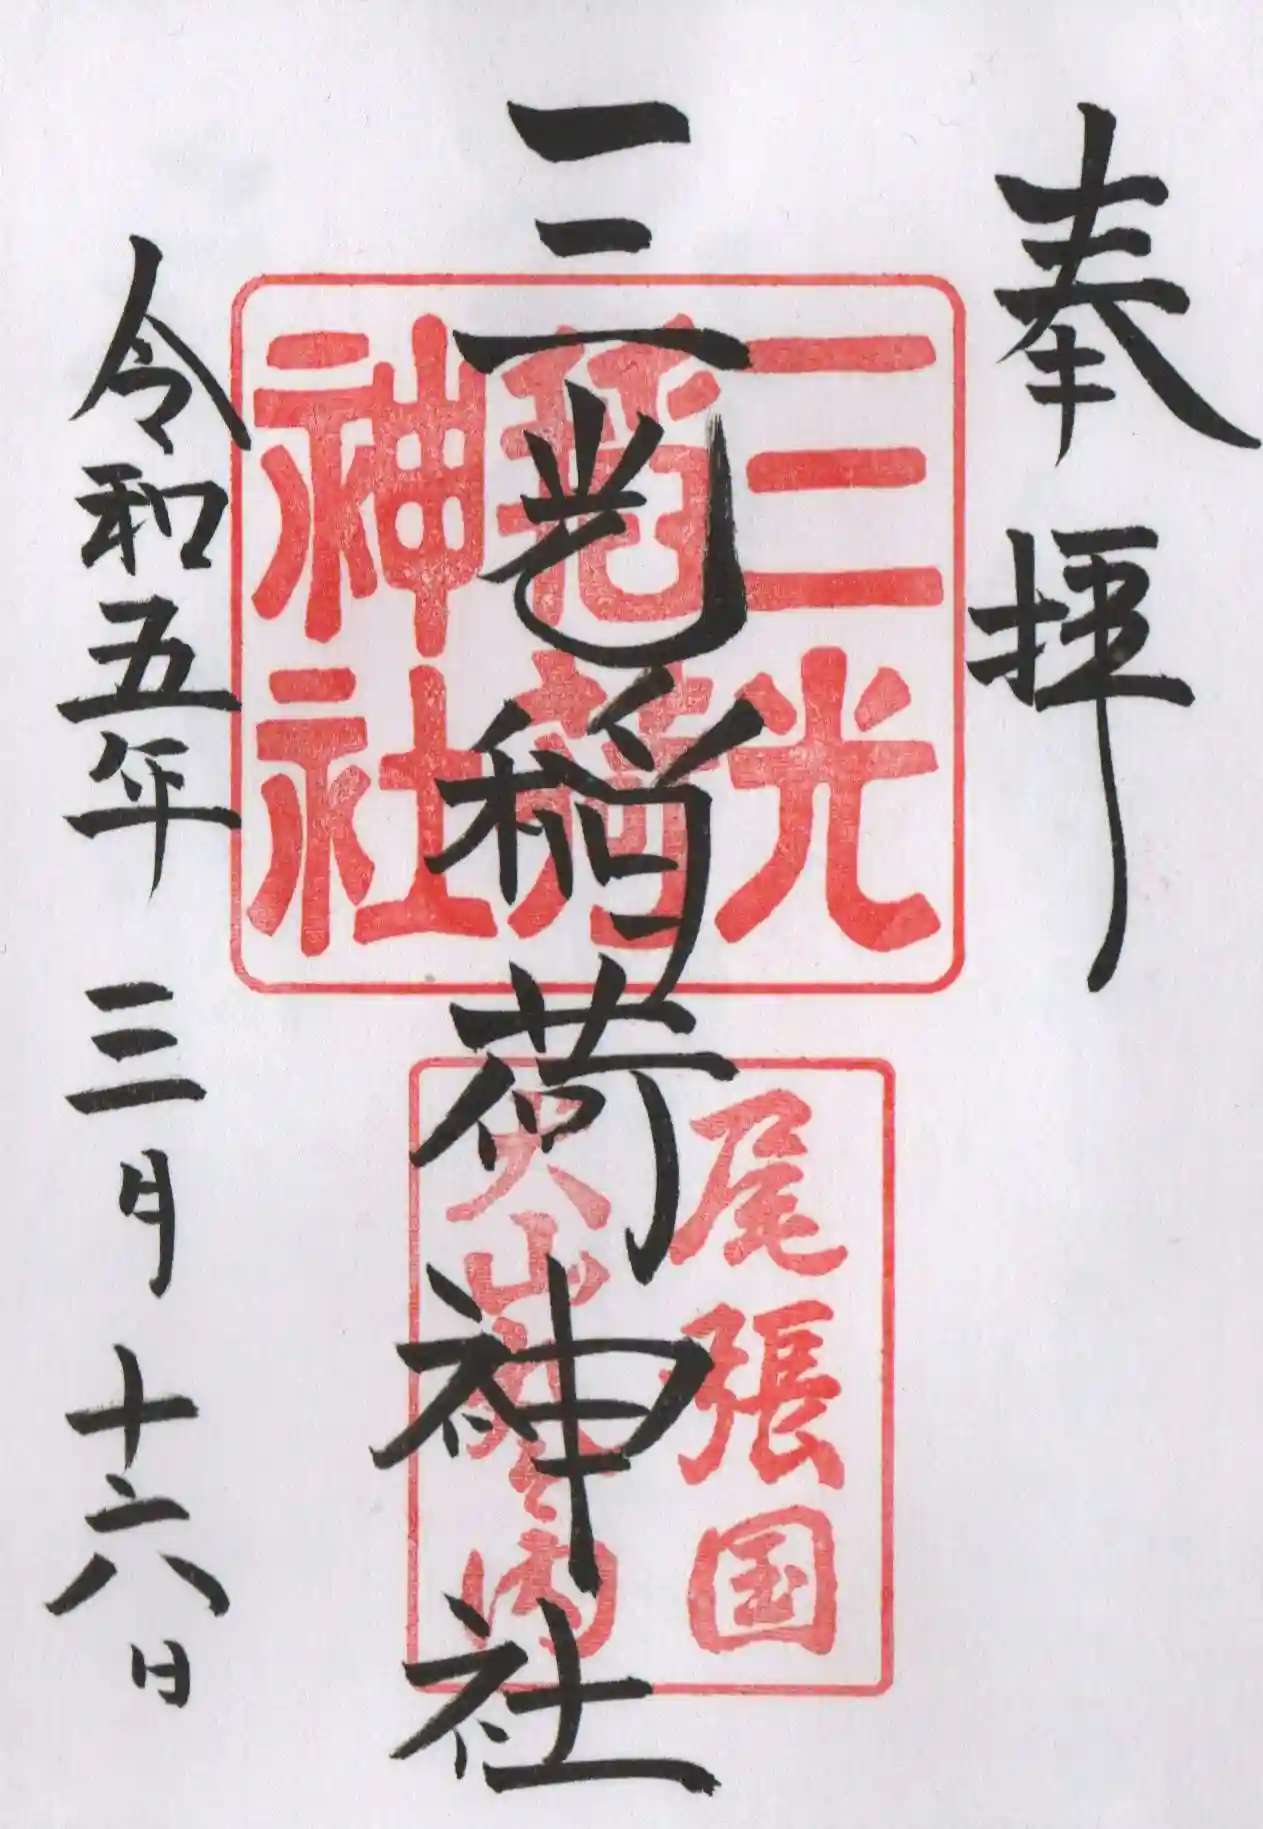 奉拝
三光稲荷神社
令和五年 三月 十六日
三光
稲荷
神社
尾張国
犬山城之内